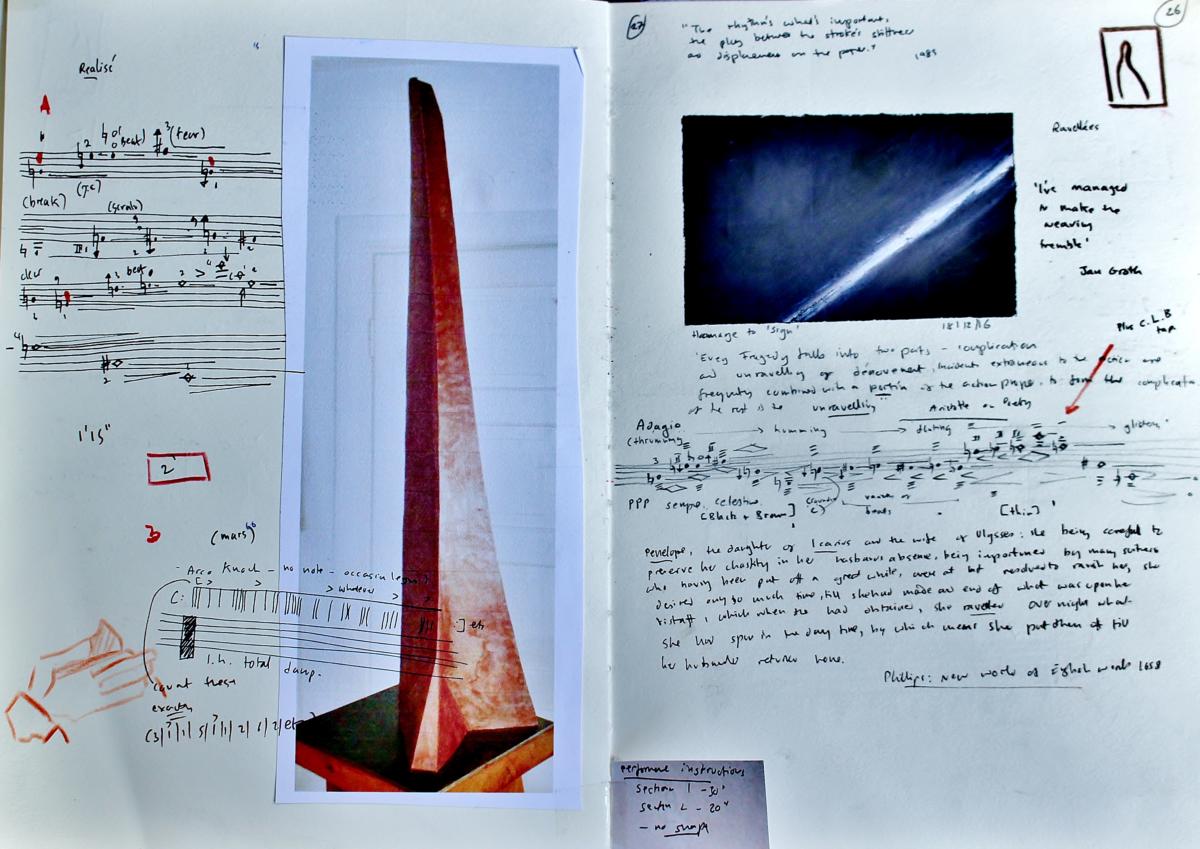 Realisé
A
2
(beat)
3 (fear)
(break)
2
beat
1'15"
2'
B
(mars)
Arco Knock - no note - occasion
whatever
C:
] etc
l.h. total damp.
count these
exactly
27
26
"The rhythm is what's important,
the play between the stroke's stiffness
and displacement on the paper."
1985
Ravelleés
'I've managed
to make the
weaving
tremble'
Jan Groth
Homage to 'Sign'
18/12/16
Plus C.L.B
'Every Tragedy falls into two parts - complication
and unravelling or denouement, incidents extraneous to the action are
frequently combined with a portion of the action proper, to form the complication
the rest is the unravelling"
Aristotle on Poetry
Adagio
(thrumming
humming
glisten'
PPP sempre,
[Black + Brown]
beats
[thin]
Penelope, the daughter of Icarius and the wife of Ulysses: she being careful to
preserve her chastity in her husbands absence, being importuned by many suiters
who having been put off a great while, were at last resolved to ravish her, she
desired only so much time, till she had made an end of what was upon her
distaff, which when she had obtained, she ravelled over night what
she had spun in the day time, by which means she put them off till
her husbands returne home.
Phillips: New world of English words 1658
performance instructions
section 1 - 30"
section 2 - 20"
- no